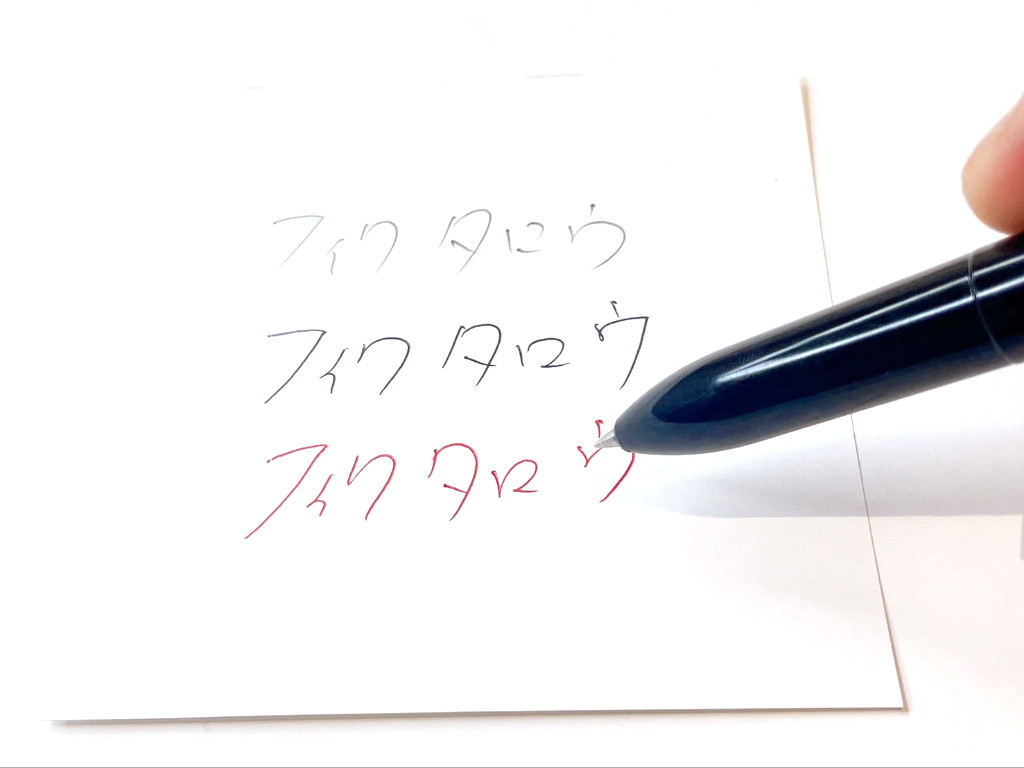 フィクタロウ
フィクタロウ
フィクタロウ